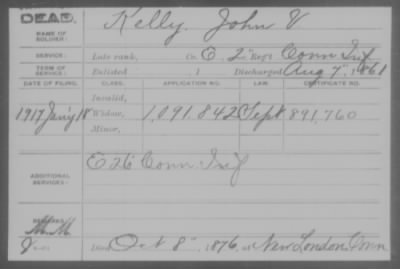 DEAD.
NAME OF SOLDIER: Kelly, John V.
SERVICE: Late rank, Co. E, 2" Reg't Conn Inf
TERM OF SERVICE: Enlisted , 1 Discharged Aug 7", 1861
DATE OF FILING. CLASS. APPLICATION NO. LAW. CERTIFICATE NO.
Invalid,
1917 Jan'y 18 Widow, 1,091.842 Sept 891,760
Minor,
ADDITIONAL SERVICES: E 26 Conn Inf
REMARKS:
Died Oct 8", 1876, at New London, Conn